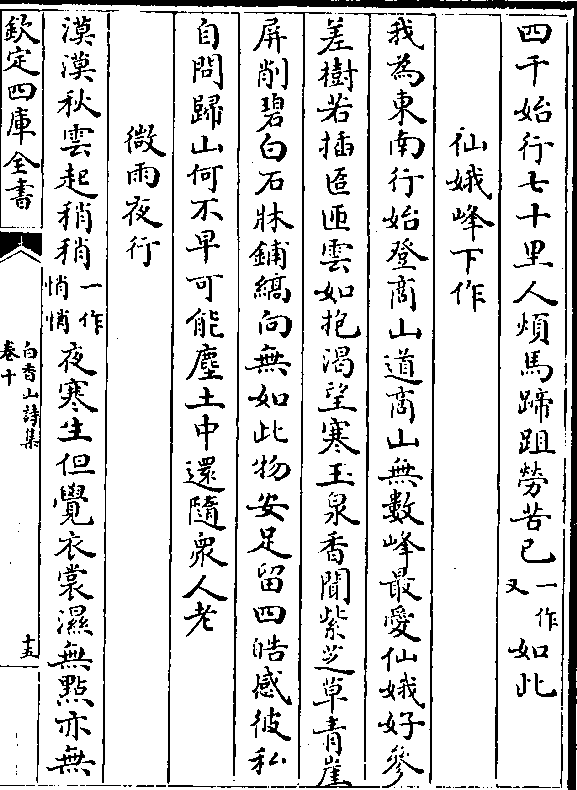 四千始行七十里人煩馬蹄跙勞苦已一作又如此
仙娥峰下作
我為東南行始登商山道商山無數峰最愛仙娥好參
差樹若插匼匝雲如抱渴望寒玉泉香聞紫芝草青崖
屏削碧白石牀鋪縞向無如此物安足留四皓感彼私
自問歸山何不早可能塵土中還隨衆人老
微雨夜行
漠漠秋雲起稍稍一作悄悄夜寒生但覺衣裳濕無點亦無
欽定四庫全書
白香山詩集
卷十
十五